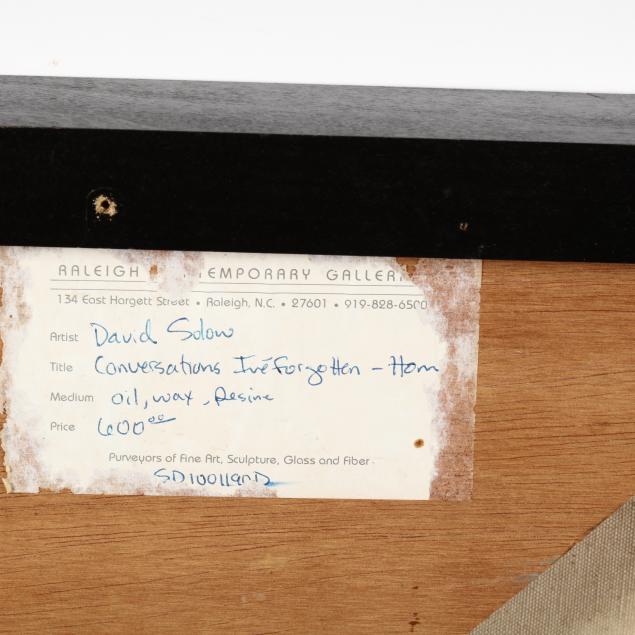 RALEIGH TEMPORARY GALLER
134 East Hargett Street • Raleigh, N.C. • 27601 • 919-828-6500
Artist David Solow
Title Conversations I've Forgotten - Hom
Medium oil, wax, Resine
Price 600.00
Purveyors of Fine Art, Sculpture, Glass and Fiber